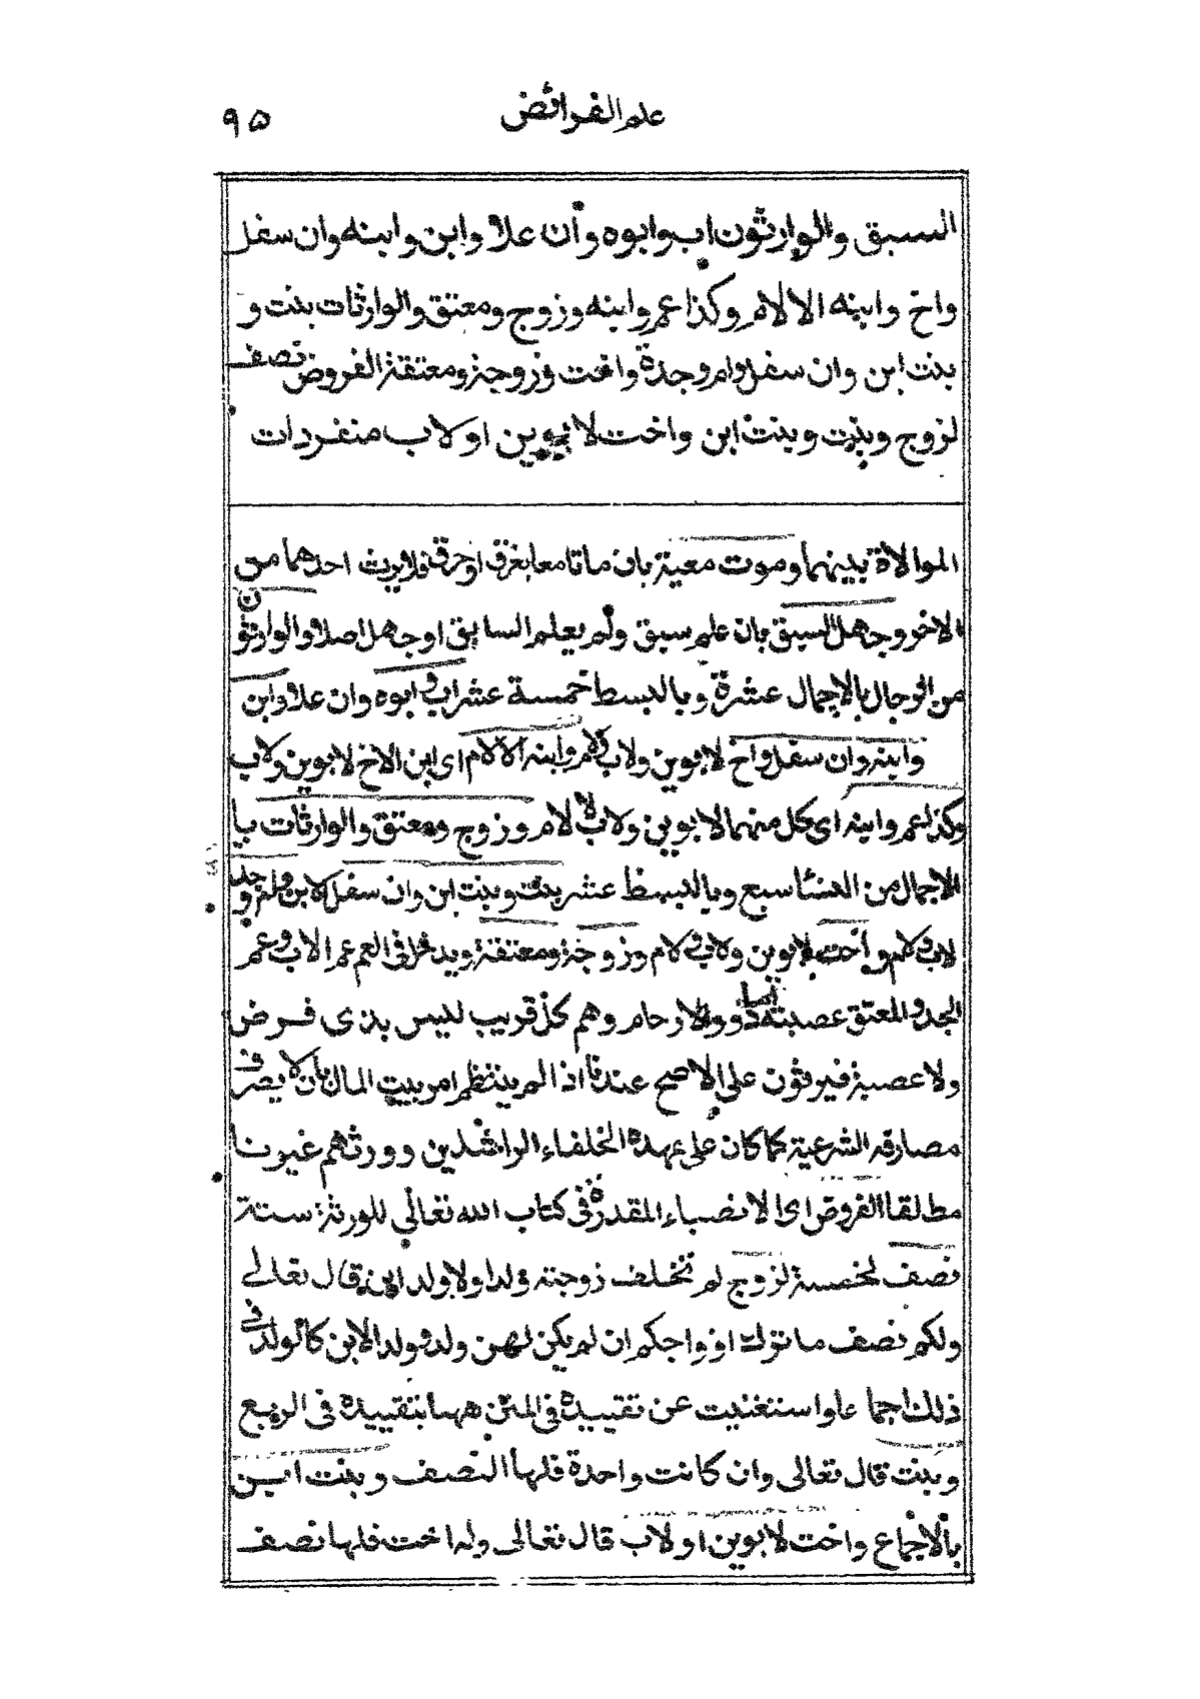 علم الفرائض
٩٥
السبق والوارثون اب وابوه وان علا وابن وابنه وان سفل
واخ وابنه الا لام وكذا عم وابنه وزوج ومعتق والوارثات بنت و
بنت ابن وان سفل وام وجدة واخت وزوجة ومعتقة الفروض نصف
لزوج وبنت وبنت ابن واخت لابوين او لاب منفردات
الموالاة بينهما وموت معية بان ماتا معا بغرق او حرق فلا يرث احدهما من
الاخر وجهل السبق بان علم سبق ولم يعلم السابق او جهل اصلا والوارثون
من الرجال بالاجمال عشرة وبالبسط خمسة عشر اب وابوه وان علا وابن
وابنه وان سفل واخ لابوين ولاب ولام وابنه الا لام اي ابن الاخ لابوين ولاب
وكذا عم وابنه اي كل منهما لابوين ولاب لا لام وزوج ومعتق والوارثات با
لاجمال من النسا سبع وبالبسط عشر بنت وبنت ابن وان سفل الابن وام وجدة
لاب ولام واخت لابوين ولاب ولام وزوجة ومعتقة ويدخل في العم عم الاب وعم
الجد والمعتق عصبته ذوو الارحام وهم كل قريب ليس بذي فرض
ولا عصبة فيرثون على الاصح عندنا اذا لم ينتظم امر بيت المال بان لا يصرف في
مصارفه الشرعية كما كان على عهدة الخلفاء الراشدين وورثهم غيرنا
مطلقا الفروض اي الانصباء المقدرة في كتاب الله تعالى للورثة ستة
نصف لخمسة لزوج لم تخلف زوجته ولدا ولا ولد ابن قال تعالى
ولكم نصف ما ترك ازواجكم ان لم يكن لهن ولد وولد الابن كالولد في
ذلك اجما عا واستغنيت عن تقييده في المتن ههنا بتقييده في الربع
وبنت قال تعالى وان كانت واحدة فلها النصف وبنت ابن
بالاجماع واخت لابوين او لاب قال تعالى وله اخت فلها نصف